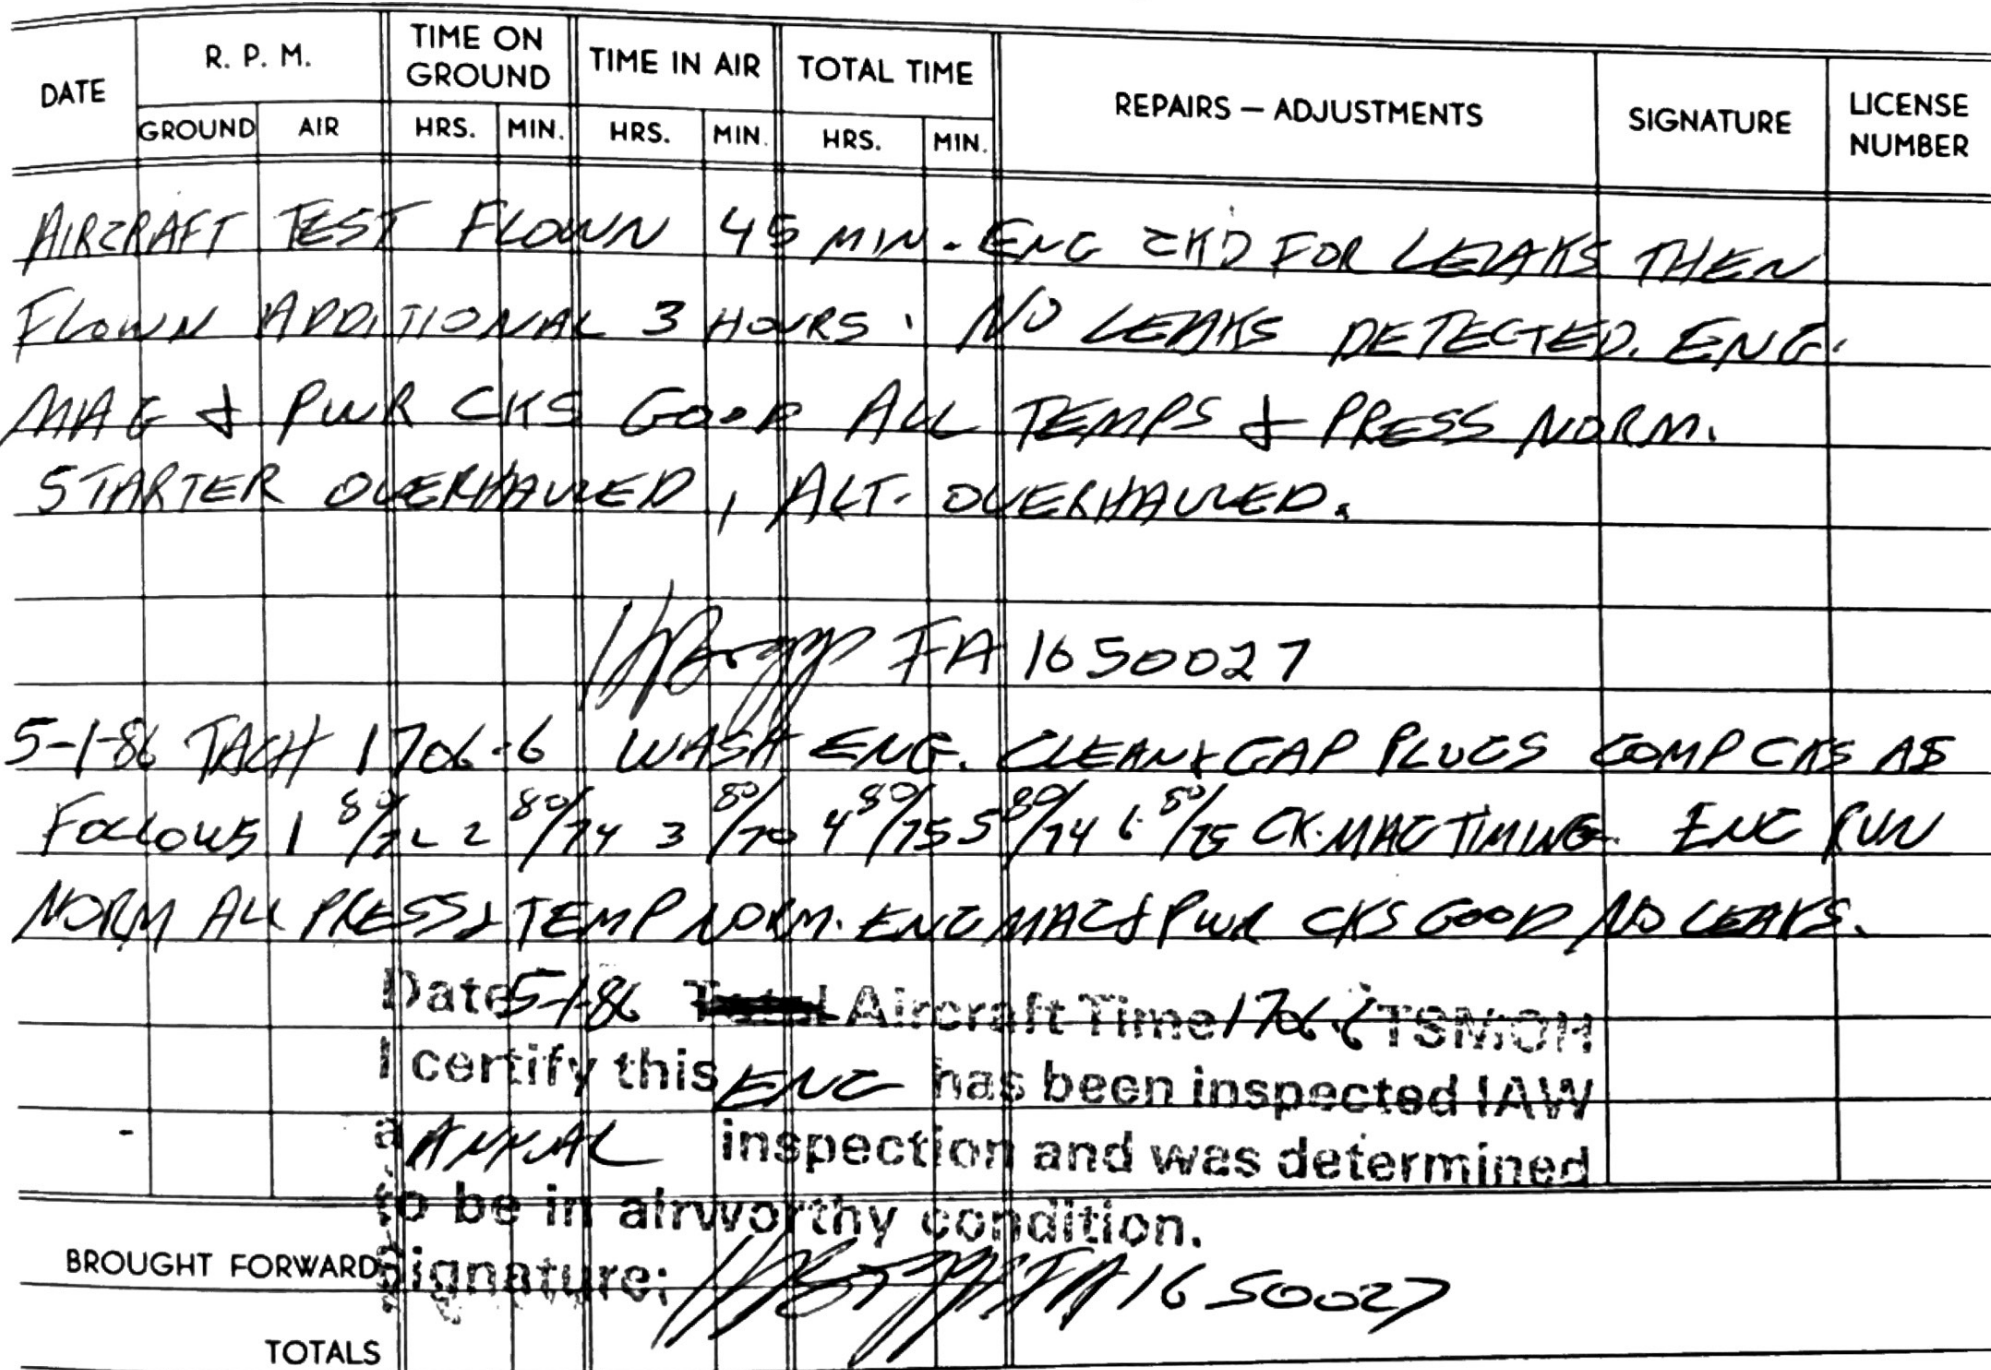 DATE R. P. M. TIME ON GROUND TIME IN AIR TOTAL TIME REPAIRS — ADJUSTMENTS SIGNATURE LICENSE NUMBER
GROUND AIR HRS. MIN. HRS. MIN. HRS. MIN.
AIRCRAFT TEST FLOWN 45 MIN. ENG CKD FOR LEAKS THEN
FLOWN ADDITIONAL 3 HOURS. NO LEAKS DETECTED. ENG.
MAG & PWR CKS GOOD ALL TEMPS & PRESS NORM.
STARTER OVERHAULED, ALT. OVERHAULED.
IA 1650027
5-1-86 TACH 1706.6 WASH ENG. CLEAN & GAP PLUGS COMP CKS AS
FOLLOWS 1 80/72 2 80/74 3 80/70 4 80/75 5 80/74 6 80/75 CK. MAG TIMING. ENG RUN
NORM ALL PRESS & TEMP NORM. ENG MAG & PWR CKS GOOD NO LEAKS.
Date 5-1-86 Total Aircraft Time 1706.6 TSMOH
I certify this ENG has been inspected IAW
a ANNAL inspection and was determined
to be in airworthy condition.
BROUGHT FORWARD Signature: IA 1650027
TOTALS